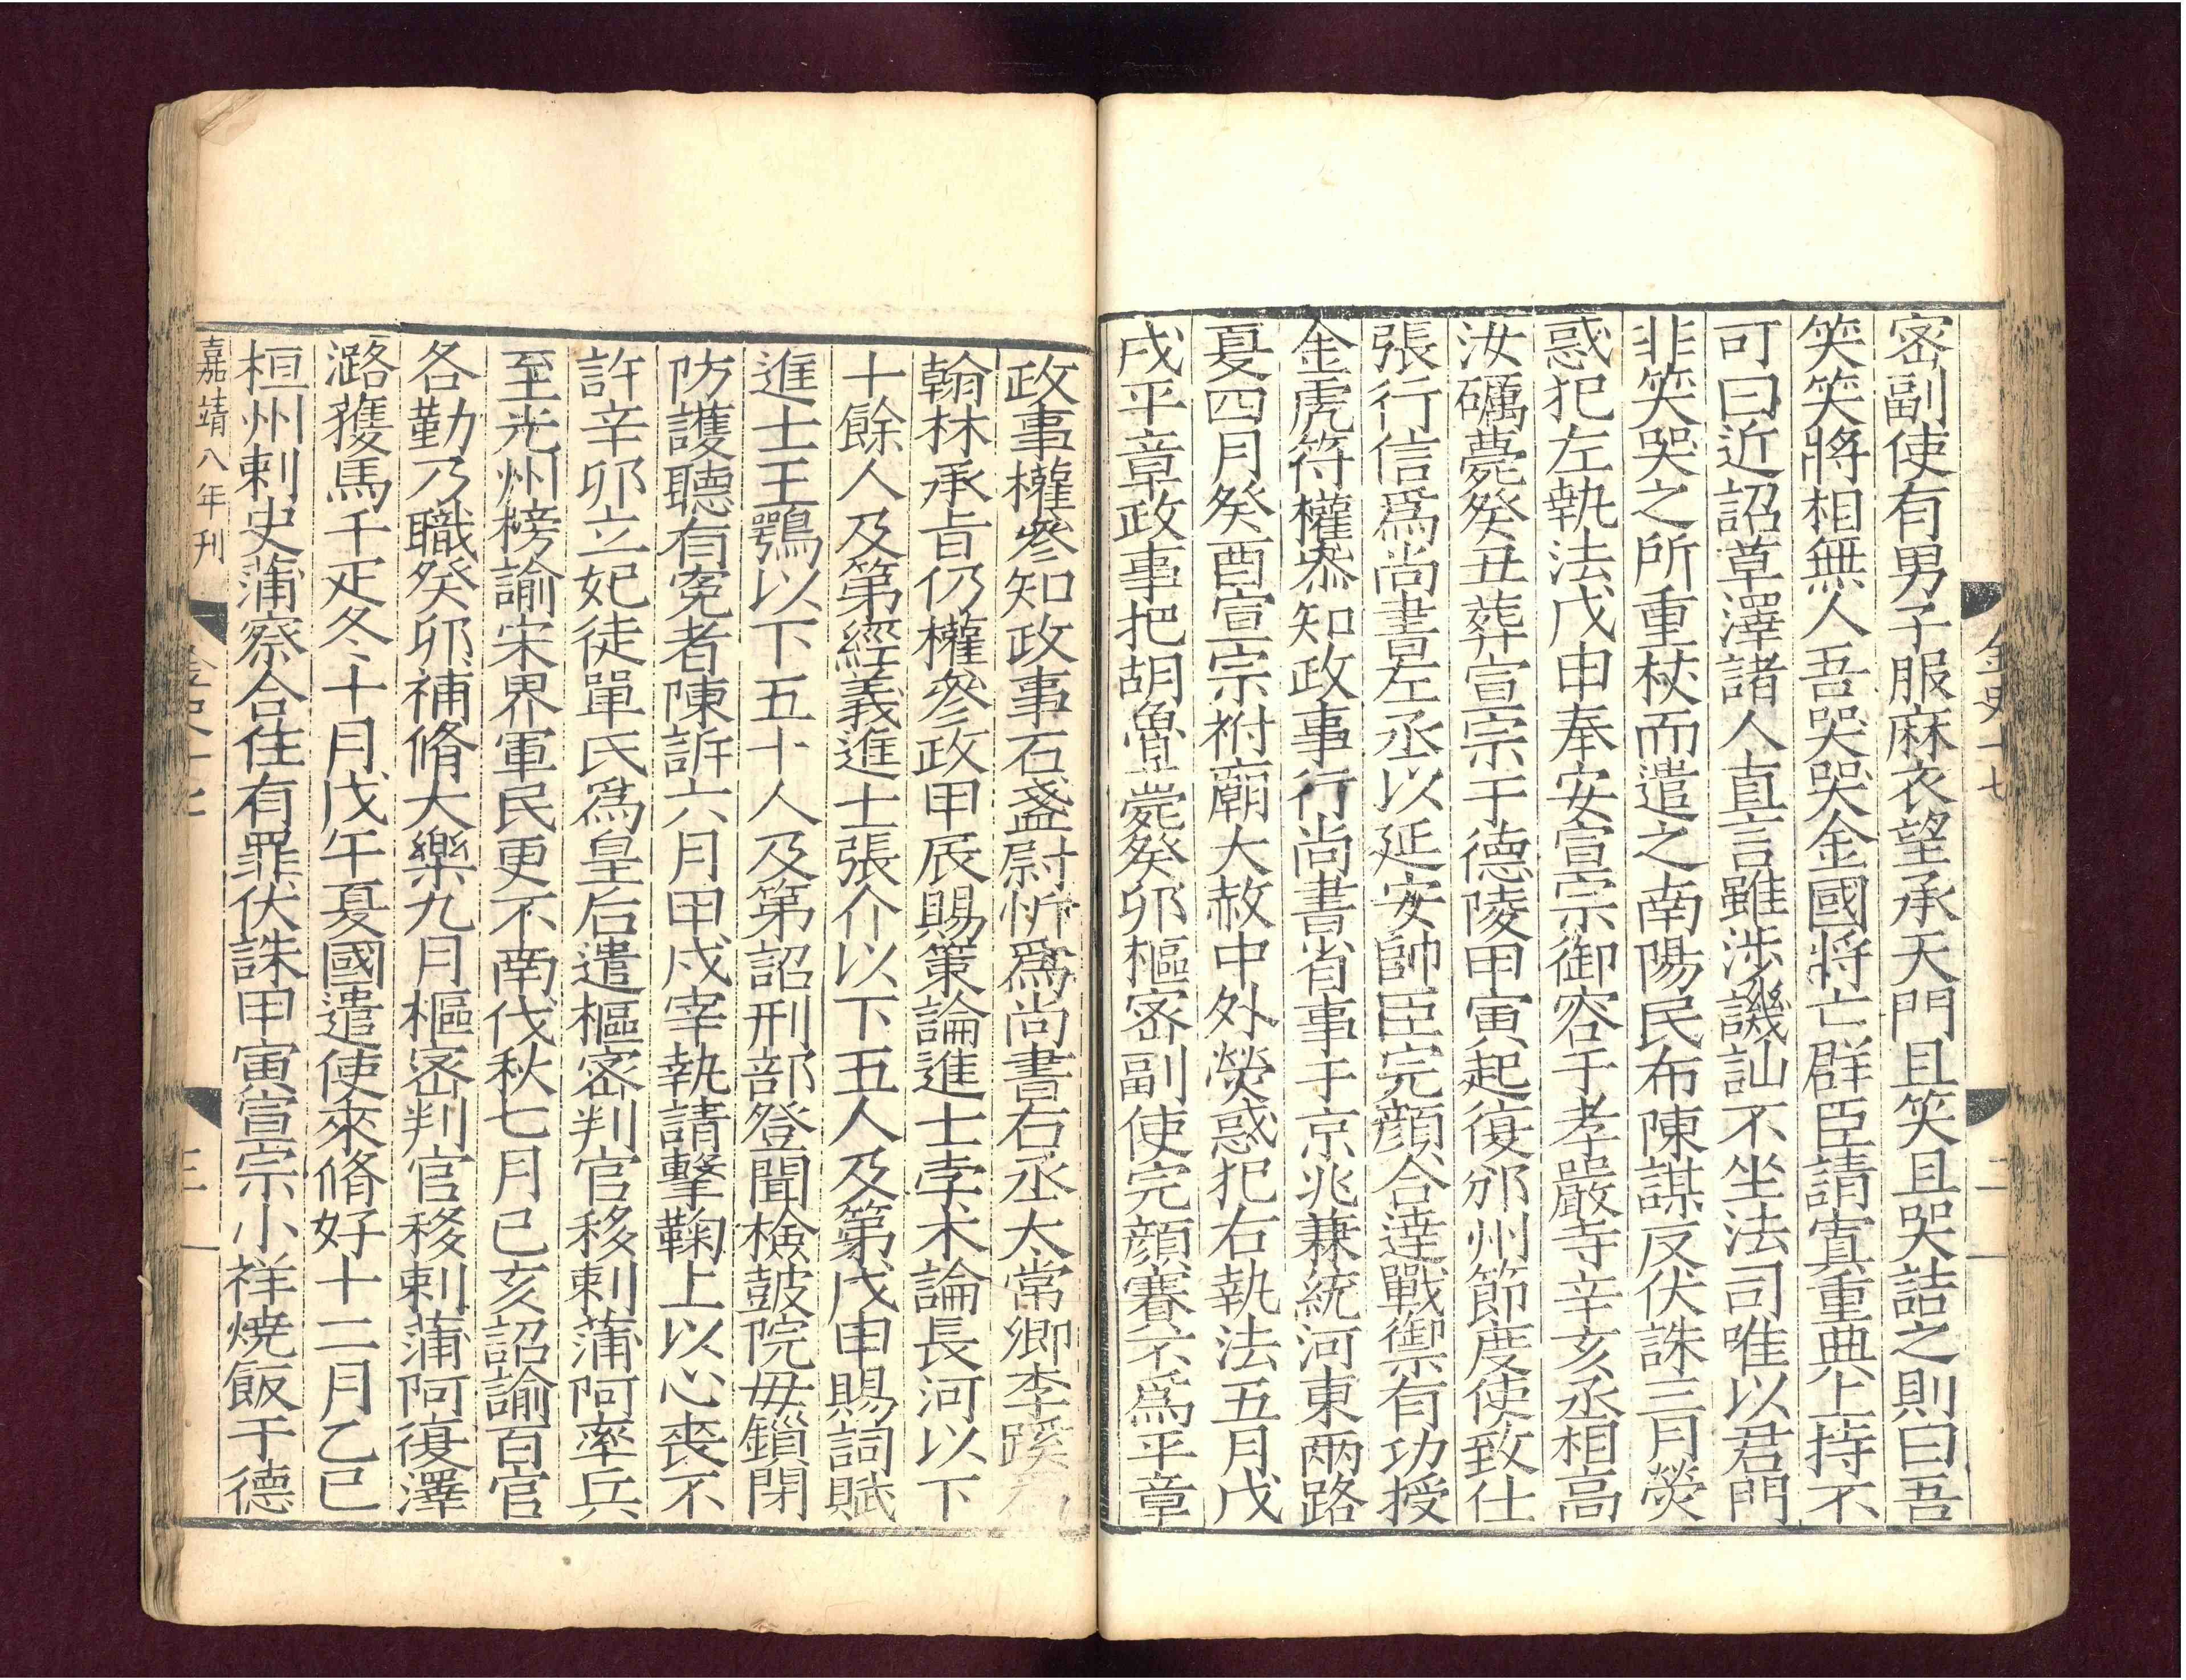 金史十七
二
密副使有男子服麻衣望承天門且笑且哭詰之則曰吾
笑笑將相無人吾哭哭金國將亡群臣請寘重典上持不
可曰近詔草澤諸人直言雖涉譏訕不坐法司唯以君門
非笑哭之所重杖而遣之南陽民布陳謀反伏誅三月熒
惑犯左執法戊申奉安宣宗御容于孝嚴寺辛亥丞相高
汝礪薨癸丑葬宣宗于德陵甲寅起復邠州節度使致仕
張行信爲尚書左丞以延安帥臣完顔合達戰禦有功授
金虎符權叅知政事行尚書省事于京兆兼統河東兩路
夏四月癸酉宣宗祔廟大赦中外熒惑犯右執法五月戊
戌平章政事把胡魯薨癸卯樞密副使完顔賽不爲平章
政事權參知政事石盞尉忻爲尚書右丞太常卿李蹊爲
翰林承旨仍權參政甲辰賜策論進士孛术論長河以下
十餘人及第經義進士張介以下五人及第戊申賜詞賦
進士王鶚以下五十人及第詔刑部登聞檢鼓院毋鎖閉
防護聽有寃者陳訴六月甲戌宰執請擊鞠上以心喪不
許辛卯立妃徒單氏爲皇后遣樞密判官移剌蒲阿率兵
至光州榜諭宋界軍民更不南伐秋七月己亥詔諭百官
各勤乃職癸卯補脩大樂九月樞密判官移剌蒲阿復澤
潞獲馬千疋冬十月戊午夏國遣使來脩好十二月乙巳
桓州刺史蒲察合住有罪伏誅甲寅宣宗小祥燒飯于德
嘉靖八年刊
金史十七
三